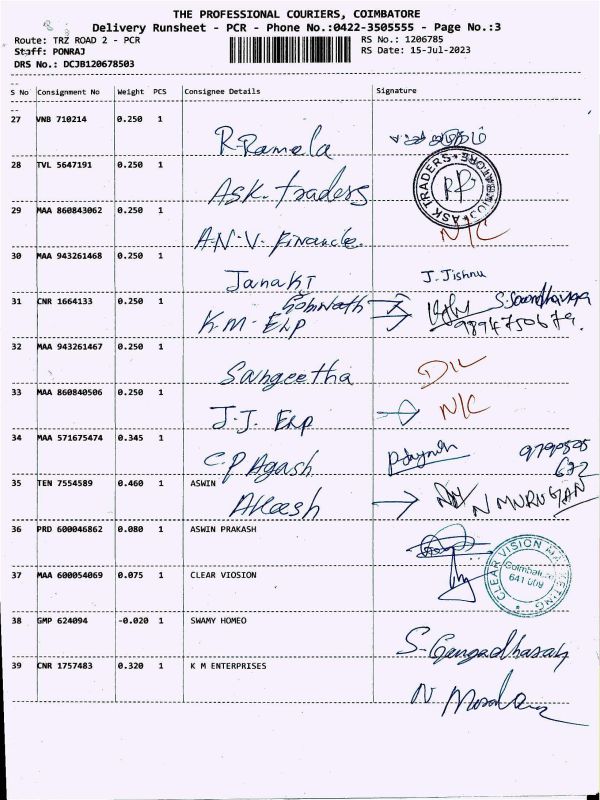 THE PROFESSIONAL COURIERS, COIMBATORE
Delivery Runsheet - PCR - Phone No.:0422-3505555 - Page No.:3
Route: TRZ ROAD 2 - PCR RS No.: 1206785
Staff: PONRAJ RS Date: 15-Jul-2023
DRS No.: DCJB120678503
S No Consignment No Weight PCS Consignee Details Signature
27 VNB 710214 0.250 1
R. Ramela
28 TVL 5647191 0.250 1
ASK. Traders ASK TRADERS
29 MAA 860843062 0.250 1
A.N.V. Finance N/C
30 MAA 943261468 0.250 1
Janaki J. Jishnu
31 CNR 1664133 0.250 1 Gobinath
K.M. ERP 9894750679
32 MAA 943261467 0.250 1
Sangeetha D/L
33 MAA 860840506 0.250 1
J.J. ERP N/C
34 MAA 571675474 0.345 1
C.P Agash
35 TEN 7554589 0.460 1 ASWIN
Akash N MURUGAN
36 PRD 600046862 0.080 1 ASWIN PRAKASH
37 MAA 600054069 0.075 1 CLEAR VIOSION CLEAR VISION MARKETING Coimbatore 641 009
38 GMP 624094 -0.020 1 SWAMY HOMEO
S. Gangadharan
39 CNR 1757483 0.320 1 K M ENTERPRISES